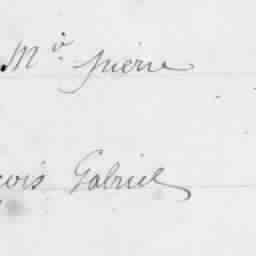 Mº pierre
çois Gabriel